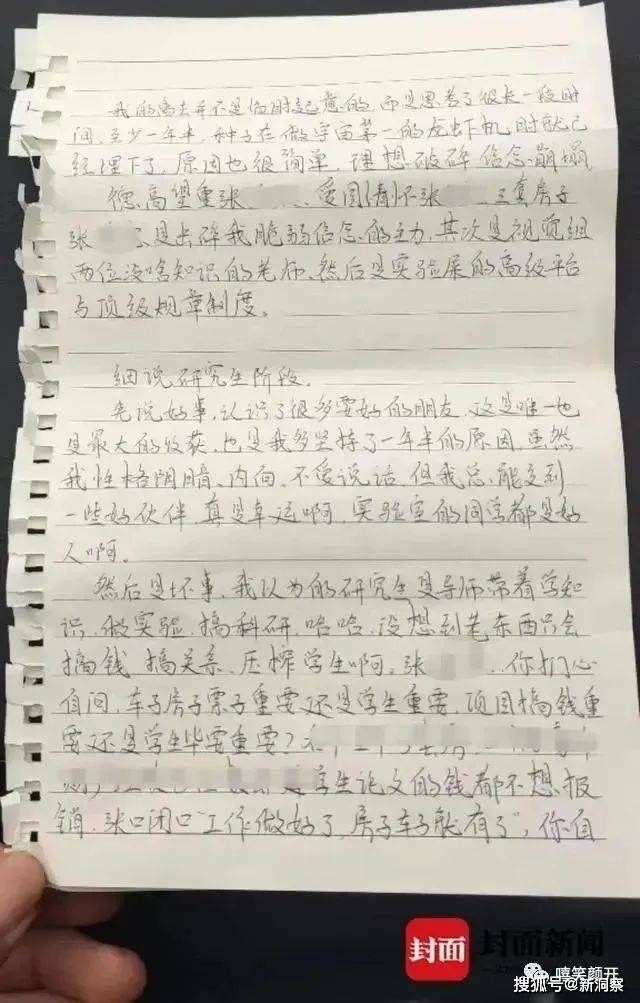 我的离去并不是临时起意的,而是思考了很长一段时
间,至少一年半,种子在做宇宙第一的龙虾机时就已
经埋下了,原因也很简单,理想破碎,信念崩塌
德高望重张 、爱国情怀张 、三套房子
张 是击碎我脆弱信念的主力,其次是视觉组
两位没啥知识的老师、然后是实验室的高级平台
与顶级规章制度。
细说研究生阶段。
先说好事,认识了很多要好的朋友,这是唯一也
是最大的收获,也是我多坚持了一年半的原因,虽然
我性格阴暗、内向、不爱说话,但我总能交到
一些好伙伴,真是幸运啊,实验室的同学都是好
人啊。
然后是坏事,我以为的研究生是导师带着学知
识、做实验、搞科研,哈哈,没想到老东西只会
搞钱、搞关系、压榨学生啊。张 ,你扪心
自问,车子房子票子重要还是学生重要,项目搞钱重
要还是学生毕业重要?
学生论文的钱都不想报
销,张口闭口“工作做好了,房子车子就有了”,你自
封面 封面新闻
嘻笑颜开
搜狐号@新洞察